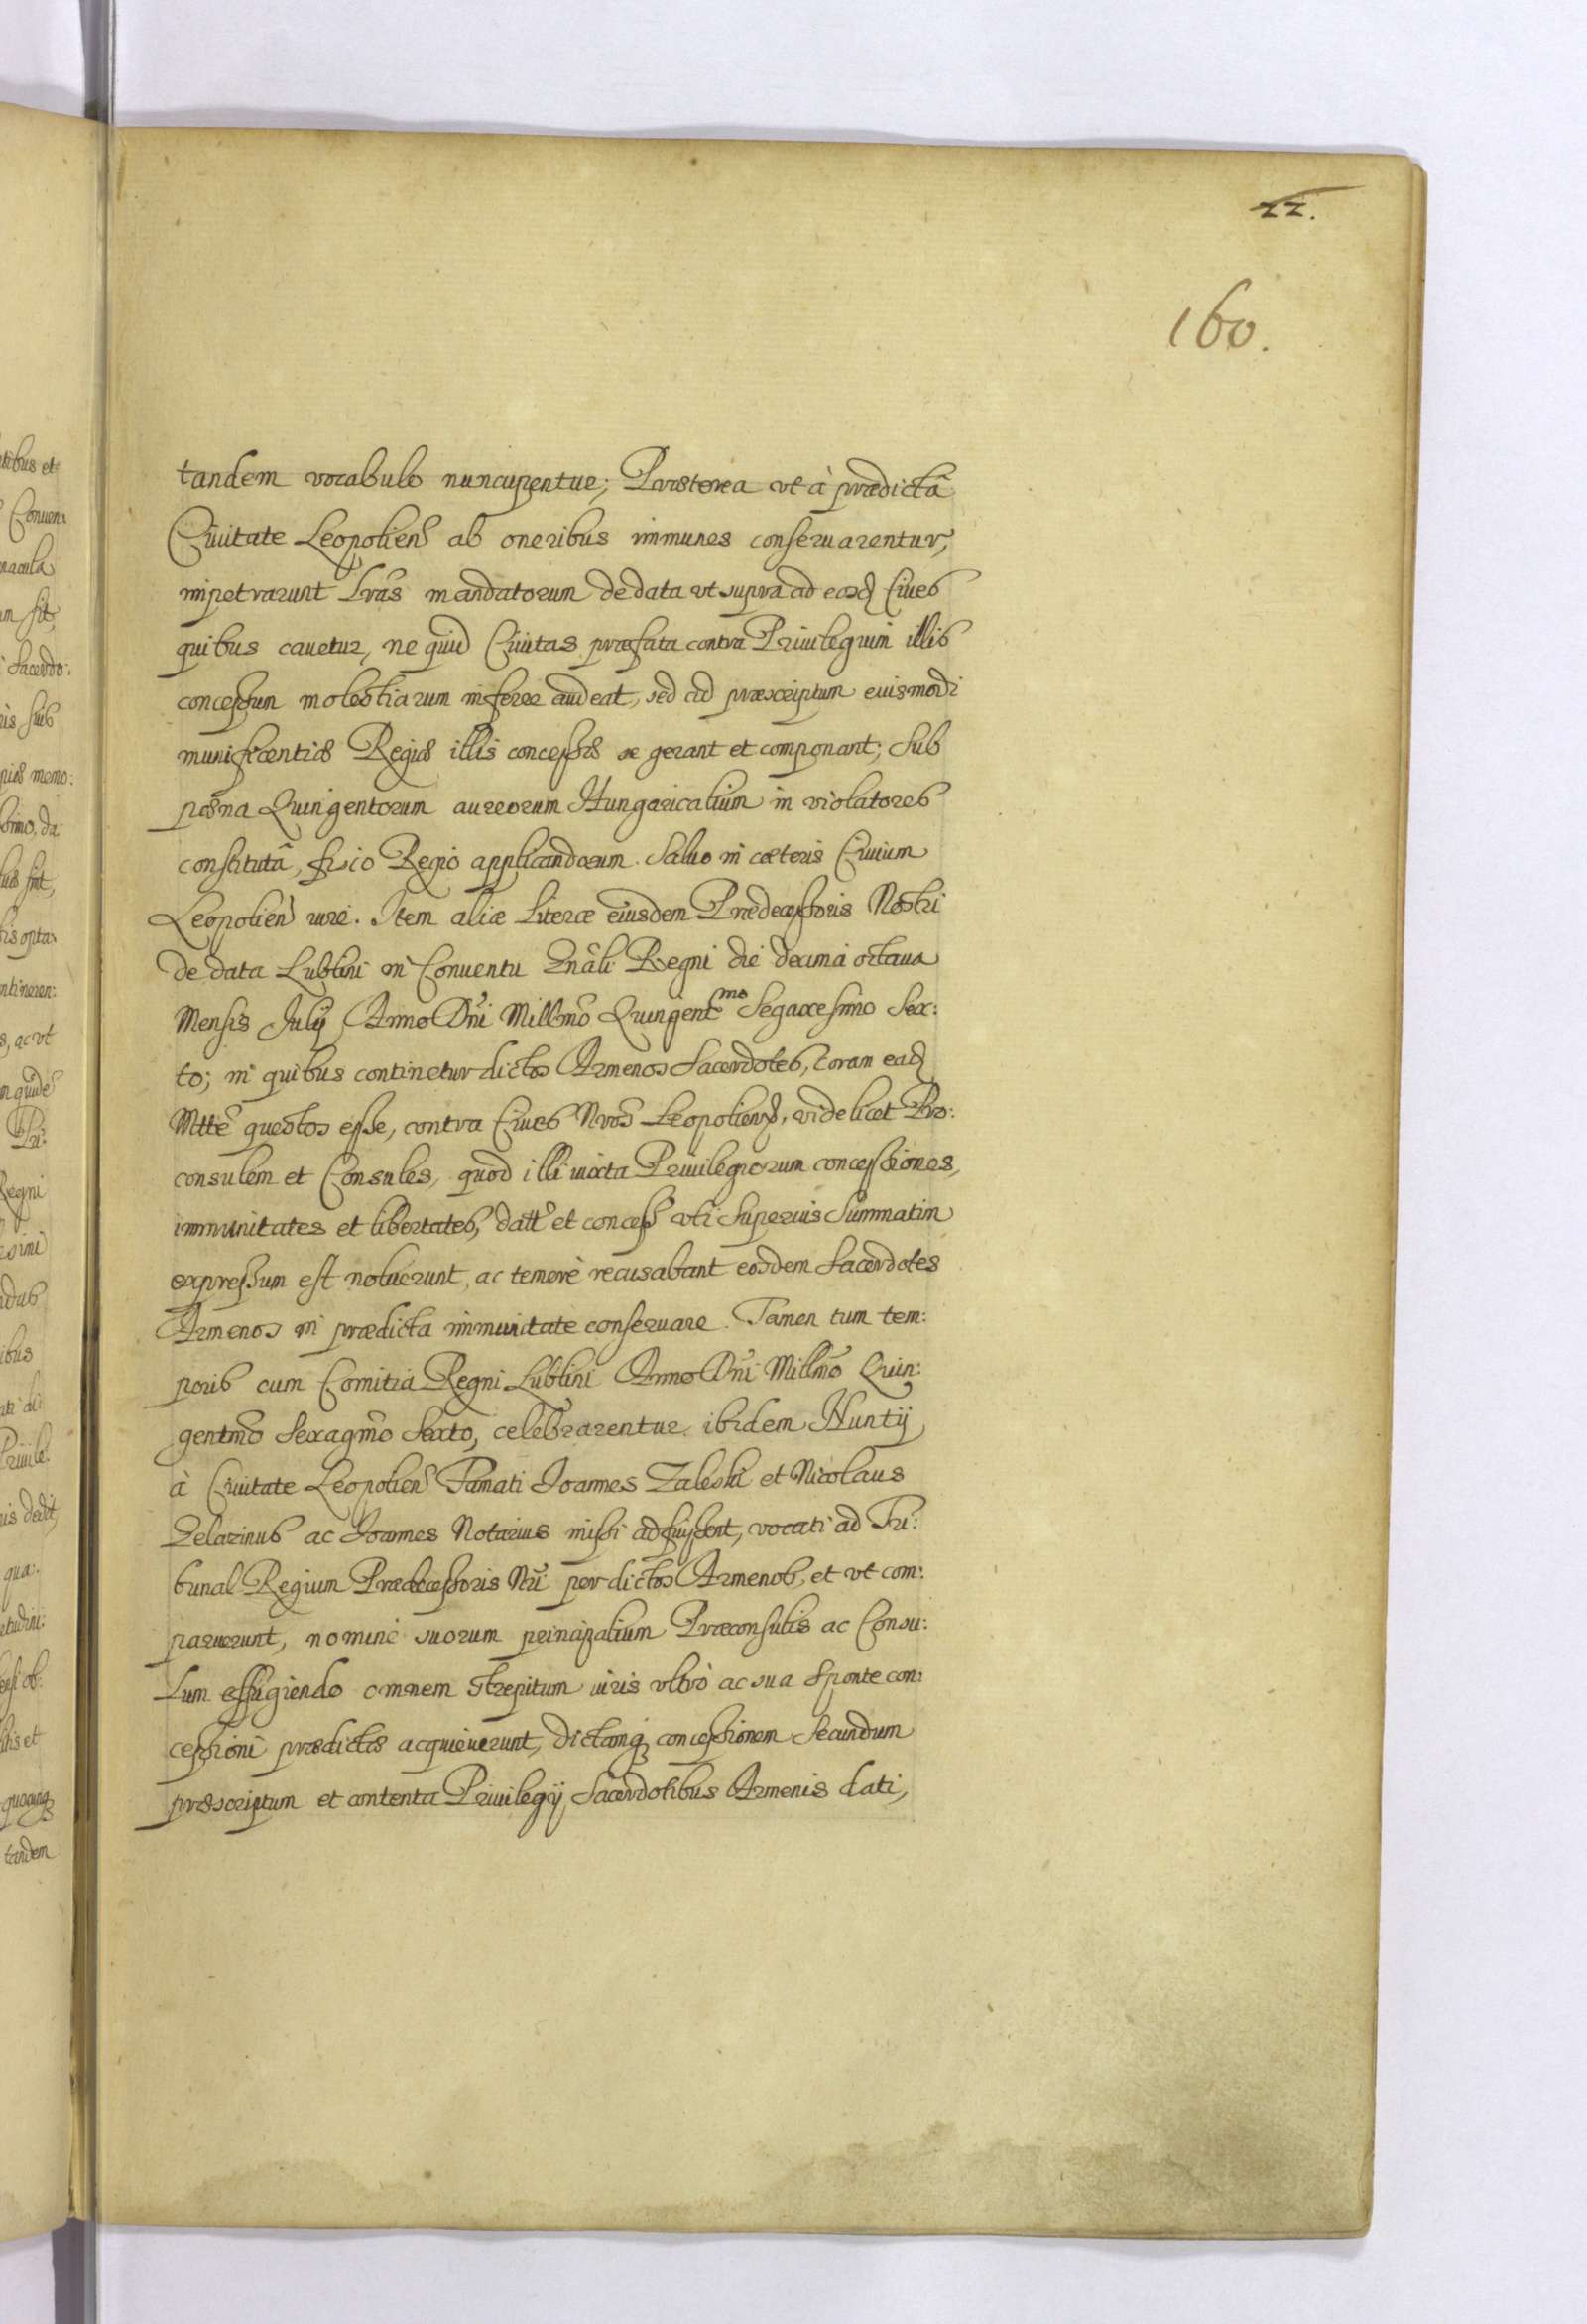 22.
160.
tandem vocabulo nuncupentur; Præterea vt à prædictâ
Ciuitate Leopolien̄ ab oneribus immunes conseruarentur,
impetrarunt Lrãs mandatorum de data vt supra ad eosđ Ciues
quibus cauetur, ne quid Ciuitas præfata contra Priuilegium illis
concessum molestiarum inferre audeat, sed ad præscriptum eiusmodi
munificentiæ Regiæ illis concessæ se gerant et componant; Sub
pœna Quingentorum aureorum Hungaricalium in violatores
constitutâ, fisco Regio applicandorum. Saluo in cæteris Ciuium
Leopolien̄ iure. Item aliæ Literæ eiusdem Prædecessoris Nostri
de data Lublini in Conuentu Gnãli Regni die decima octaua
Mensis Julij Anno Dñi Millmõ Quingentmo Segaxesimo Sex:
to; in quibus continetur dictos Armenos Sacerdotes, coram eađ
Mtte questos esse, contra Ciues Nros Leopolien̄, videlicet Pro:
consulem et Consules, quod illi iuxta Priuilegiorum concessiones,
immunitates et libertates, datt et concess vti superius summatim
expressum est noluerunt, ac temerè recusabant eosdem Sacerdotes
Armenos in prædicta immunitate conseruare. Tamen tum tem:
poris cum Comitia Regni Lublini Anno Dñi Millmõ Quin:
gentmõ Sexagmõ Sexto, celebrarentur ibidem Nuntij
à Ciuitate Leopolien̄ Famati Joannes Zaleski et Nicolaus
Zelazinus ac Joannes Notarius missi adfuissent, vocati ad Tri:
bunal Regium Prædecessoris Nri per dictos Armenos, et vt com:
paruerunt, nomine suorum principalium Præconsulis ac Consu:
lum effugiendo omnem strepitum iuris vltrò ac sua sponte con:
cessioni prædictæ acquieuerunt, dictamq concessionem secundum
præscriptum et contenta Priuilegij Sacerdotibus Armenis dati,